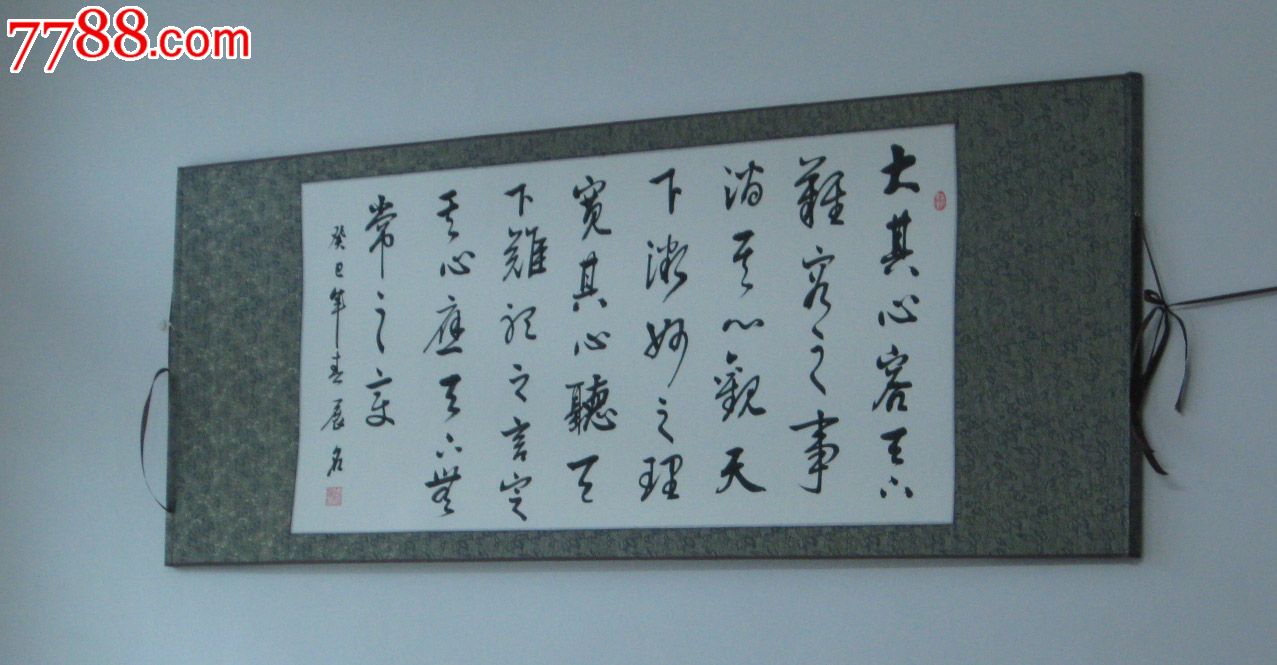 7788.com
大其心容天下
難容之事
潜其心觀天
下微妙之理
寬其心聽天
下難聽之言定
其心應天下無
常之變
癸巳年春晨名